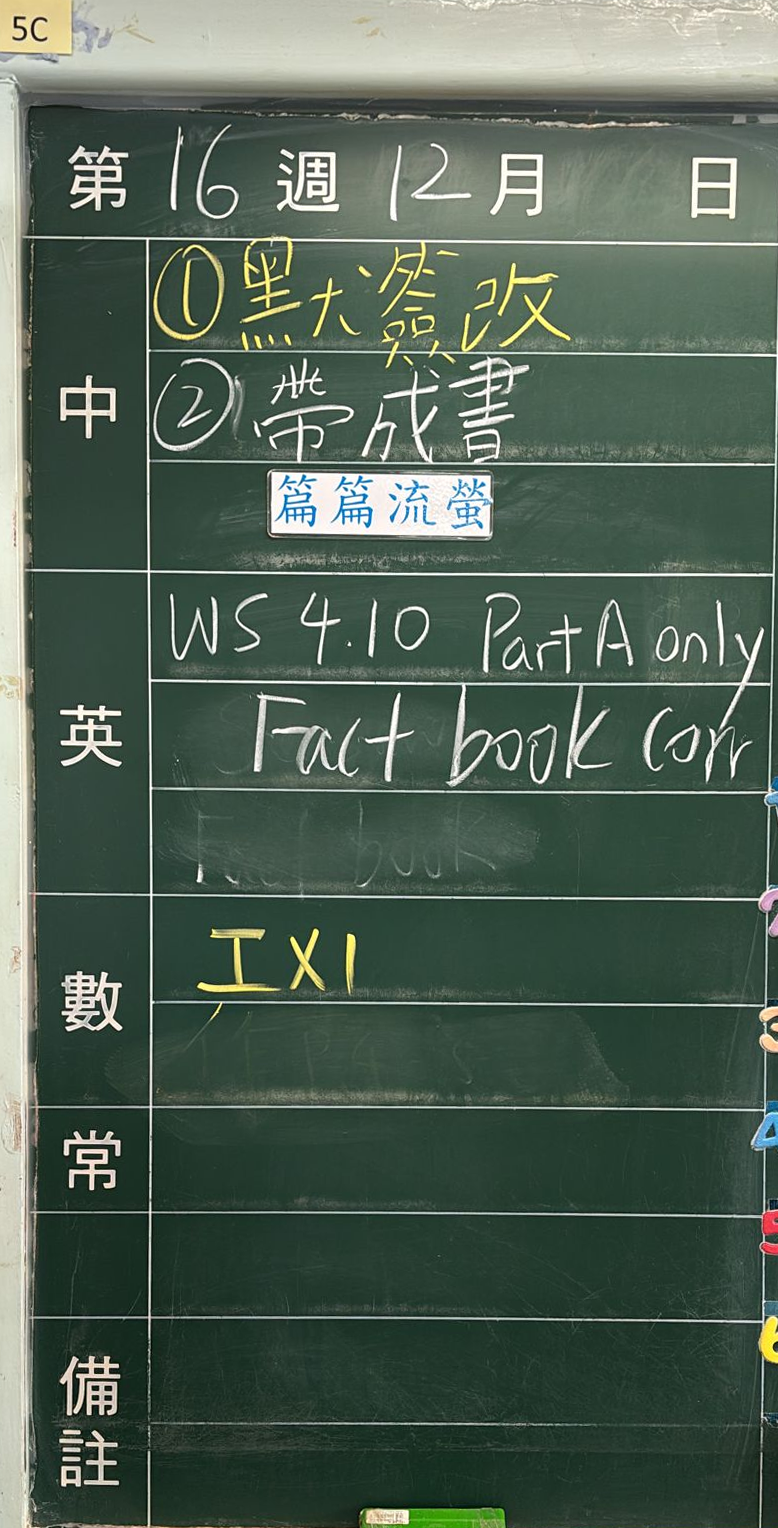 5C
第 16 週 12 月 日
中
①默簽改
②帶成書
篇篇流螢
英
WS 4.10 Part A only
Fact book corr
Fact book
數
工X1
常
備註
3
4
5
6